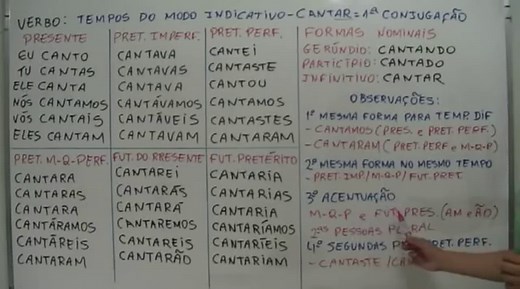 VERBO: TEMPOS DO MODO INDICATIVO-CANTAR=1ª CONJUGAÇÃO
PRESENTE
EU CANTO
TU CANTAS
ELE CANTA
NÓS CANTAMOS
VÓS CANTAIS
ELES CANTAM
PRET. IMPERF.
CANTAVA
CANTAVAS
CANTAVA
CANTÁVAMOS
CANTÁVEIS
CANTAVAM
PRET. PERF.
CANTEI
CANTASTE
CANTOU
CANTAMOS
CANTASTES
CANTARAM
PRET. M-Q-PERF.
CANTARA
CANTARAS
CANTARA
CANTÁRAMOS
CANTÁREIS
CANTARAM
FUT. DO PRESENTE
CANTAREI
CANTARÁS
CANTARÁ
CANTAREMOS
CANTAREIS
CANTARÃO
FUT. PRETÉRITO
CANTARIA
CANTARIAS
CANTARIA
CANTARÍAMOS
CANTARÍEIS
CANTARIAM
FORMAS NOMINAIS
GERÚNDIO: CANTANDO
PARTICÍPIO: CANTADO
INFINITIVO: CANTAR
OBSERVAÇÕES:
1º MESMA FORMA PARA TEMP. DIF
- CANTAMOS (PRES. e PRET. PERF.)
- CANTARAM (PRET. PERF e M-Q-P)
2º MESMA FORMA NO MESMO TEMPO
- PRET. IMP/M-Q-P/ FUT. PRET
3º ACENTUAÇÃO
M-Q-P e FUT. PRES. (AM e ÃO)
2ªs PESSOAS PLURAL
4º SEGUNDAS PRET. PERF.
- CANTASTE /